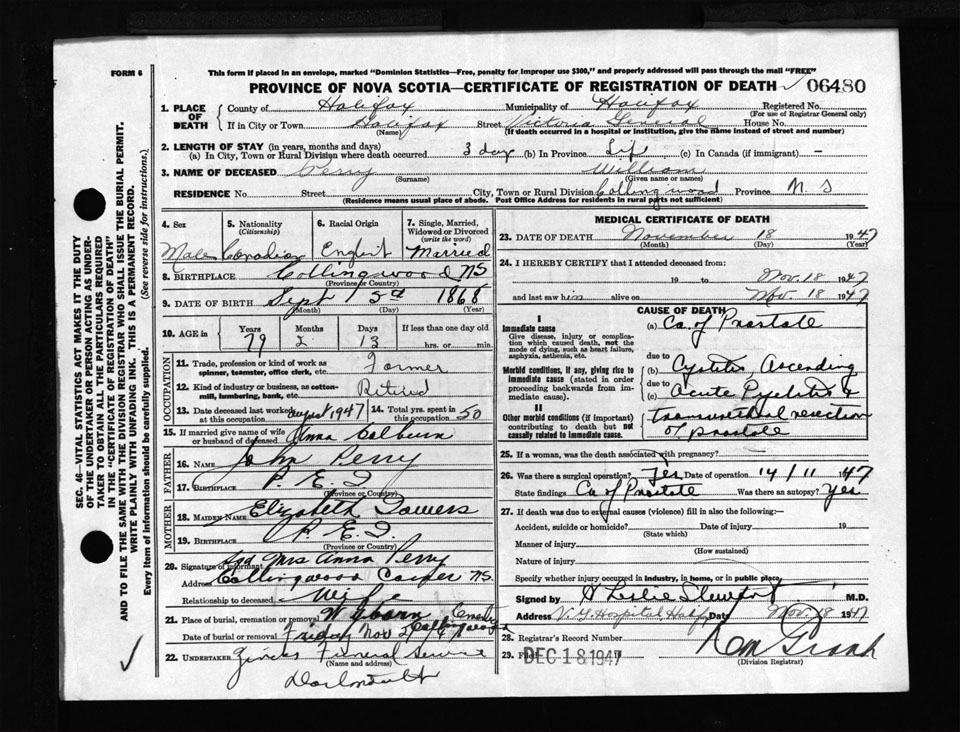 FORM 6
This form if placed in an envelope, marked "Dominion Statistics—Free, penalty for improper use $300," and properly addressed will pass through the mail "FREE"
PROVINCE OF NOVA SCOTIA—CERTIFICATE OF REGISTRATION OF DEATH 06480
1. PLACE OF DEATH
County of Halifax Municipality of Halifax Registered No.
(For use of Registrar General only)
If in City or Town Halifax Street Victoria General House No.
(Name) (If death occurred in a hospital or institution, give the name instead of street and number)
2. LENGTH OF STAY (in years, months and days)
(a) In City, Town or Rural Division where death occurred 3 day (b) In Province Life (c) In Canada (if immigrant) —
3. NAME OF DECEASED Perry William
(Surname) (Given name or names)
RESIDENCE No. Street City, Town or Rural Division Collingwood Province N S
(Residence means usual place of abode. Post Office Address for residents in rural parts not sufficient)
4. Sex
Male
5. Nationality
(Citizenship)
Canadian
6. Racial Origin
English
7. Single, Married, Widowed or Divorced
(write the word)
Married
8. BIRTHPLACE Collingwood NS
(Province or Country)
9. DATE OF BIRTH Sept 5th 1868
(Month) (Day) (Year)
10. AGE in
Years Months Days If less than one day
79 2 13 hrs. or min.
OCCUPATION
11. Trade, profession or kind of work as spinner, teamster, office clerk, etc. Farmer
12. Kind of industry or business, as cotton-mill, lumbering, bank, etc. Retired
13. Date deceased last worked at this occupation August 1947 14. Total yrs. spent in this occupation 50
15. If married give name of wife or husband of deceased Anna Colburn
FATHER
16. NAME John Perry
17. BIRTHPLACE P. E. I
(Province or Country)
MOTHER
18. MAIDEN NAME Elizabeth Powers
19. BIRTHPLACE P. E. I.
(Province or Country)
20. Signature of informant Mrs Anna Perry
Address Collingwood Corner NS.
Relationship to deceased Wife
21. Place of burial, cremation or removal Collingwood
Date of burial or removal Friday Nov
22. UNDERTAKER Funeral Service
(Name and address)
MEDICAL CERTIFICATE OF DEATH
23. DATE OF DEATH November 18 1947
(Month) (Day) (Year)
24. I HEREBY CERTIFY that I attended deceased from:
19 to Nov. 18 1947
and last saw him alive on Nov. 18 1947
CAUSE OF DEATH
I
Immediate cause
Give disease, injury or complication which caused death, not the mode of dying, such as heart failure, asphyxia, asthenia, etc.
(a) Ca. of Prostate
due to
Morbid conditions, if any, giving rise to immediate cause (stated in order proceeding backwards from immediate cause).
(b) Cystitis Ascending
due to
(c) Acute Pyelitis &
II
Other morbid conditions (if important) contributing to death but not causally related to immediate cause.
transurethral resection
of prostate
25. If a woman, was the death associated with pregnancy?
26. Was there a surgical operation? Yes Date of operation 14/11 1947
State findings Ca of Prostate Was there an autopsy? Yes
27. If death was due to external causes (violence) fill in also the following:—
Accident, suicide or homicide? Date of injury 19
(State which)
Manner of injury
(How sustained)
Nature of injury
Specify whether injury occurred in industry, in home, or in public place
Signed by Leslie M.D.
Address V. G. Hospital Halifax Date Nov. 18 1947
28. Registrar's Record Number
29. Filed DEC 18 1947
(Division Registrar)
SEC. 46—VITAL STATISTICS ACT MAKES IT THE DUTY
OF THE UNDERTAKER OR PERSON ACTING AS UNDER-
TAKER TO OBTAIN ALL THE PARTICULARS REQUIRED
IN THE "CERTIFICATE OF REGISTRATION OF DEATH"
AND TO FILE THE SAME WITH THE DIVISION REGISTRAR WHO SHALL ISSUE THE BURIAL PERMIT.
WRITE PLAINLY WITH UNFADING INK. THIS IS A PERMANENT RECORD.
Every item of information should be carefully supplied. (See reverse side for instructions.)